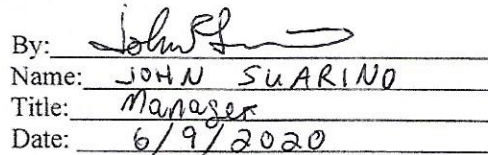 By: John S
Name: JOHN SUARINO
Title: Manager
Date: 6/9/2020